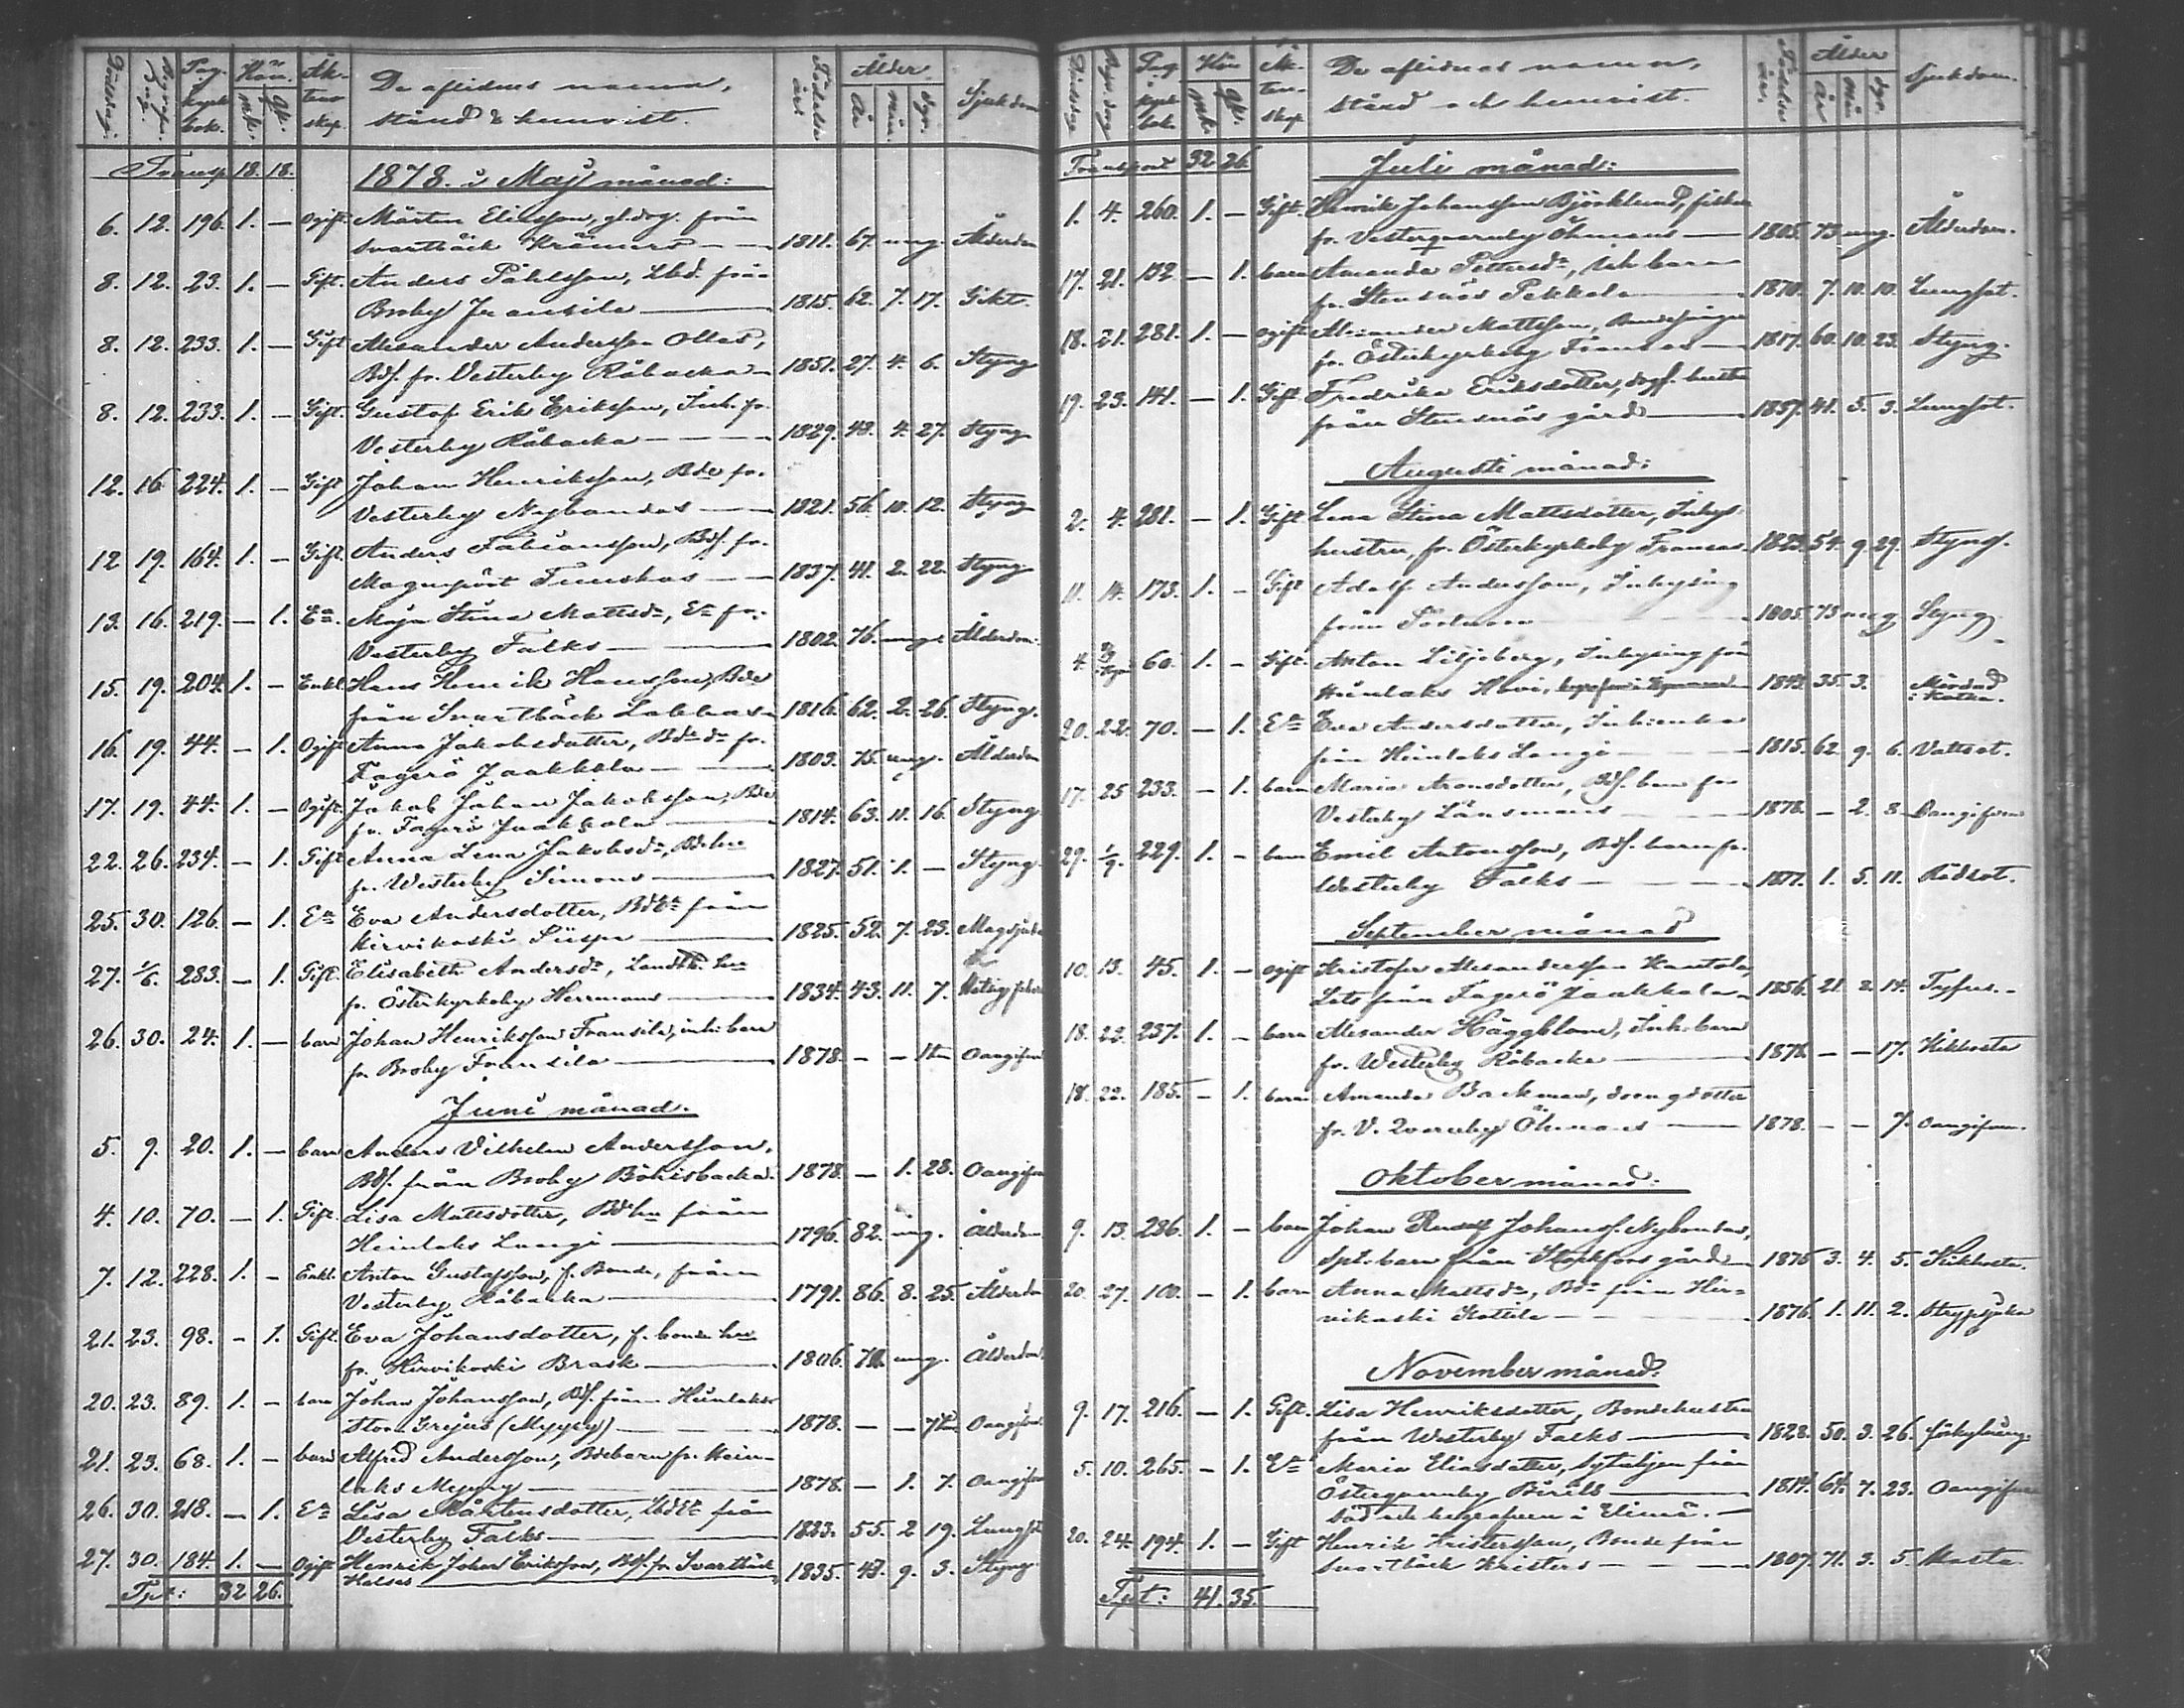 Dödsdag. Begrafn. dag. Pag. kyrk bok. Kön. mk. qk. Äk- ten skp. De aflidnes namn, stånd & hemvist. Födelse år. Ålder år mån. dgr. Sjukdom
Transp. 18. 18. 1878. i Maj månad:
6. 12. 196. 1. — Ogift. Mårten Eliasson, gl. drg. från
Svartbäck Krämars — — 1811. 67. ung. Ålderdom
8. 12. 23. 1. — Gift. Anders Påhlsson, Lbd. från
Broby Fransila — 1815. 62. 7. 17. Gikt.
8. 12. 233. 1. — Gift Alexander Andersson Ollas,
Bdf. fr. Vesterby Råbacka — 1851. 27. 4. 6. Styng
8. 12. 233. 1. — Gift. Gustaf Erik Eriksson, Inh. fr.
Vesterby Råbacka — — — 1829. 48. 4. 27. Styng
12. 16 224. 1. — Gift Johan Henriksson, Bde fr.
Vesterby Nybondas — — 1821. 56. 10. 12. Styng
12 19. 164. 1. — Gift. Anders Fabiansson, Bdf. fr.
Magnspört Tunskas — — 1837. 41. 2. 22. Styng
13. 16. 219. — 1. Ea. Maja Stina Mattsdr, Ea fr.
Vesterby Falks — — 1802. 76. ung. Ålderdom:
15. 19. 204. 1. — Enkl. Hans Henrik Hansson, Bde
från Svartbäck Labbas — 1816. 62. 2. 26. Styng.
16. 19. 44. — 1. Ogift Anna Jakobsdotter, Bdedr fr.
Fagerö Jaakkola — — 1803. 75. ung. Ålderdom
17. 19. 44. 1. — Ogift. Jakob Johan Jakobsson, Bde
fr. Fagerö Jaakkola — 1814. 63. 11. 16. Styng
22. 26. 234. — 1. Gift Anna Lena Jakobsdr, Bdehu
fr. Westerby Simons — 1827. 51. 1. — Styng.
25. 30. 126. — 1. Ea Eva Andersdotter, BdEa från
Hirvikoski — 1825. 52. 7. 23. Magsjuka
27. 1/6. 283. — 1. Gift. Elisabeth Andersdr, Landtb. hu
fr. Österkyrkoby Herrmans — 1834. 43. 11. 7. feber
26. 30. 24. 1. — barn Johan Henriksson Fransila, inh. barn
fr Broby Fransila — 1878. — — 1tm Oangifven
Juni månad.
5. 9. 20. 1. — barn Anders Vilhelm Andersson,
Bdf. från Broby Böhisbacka. 1878. — 1. 28. Oangifven
4. 10. 70. — 1. Gift. Lisa Mattsdotter, Bdehu från
Heinlaks Langi — 1796. 82. ung. Ålderdom
7. 12. 228. 1. — Enkl. Anton Gustafsson, f. Bonde, från
Vesterby Råbacka — 1791. 86. 8. 25. Ålderdom
21. 23. 98. - 1. Gift. Eva Johansdotter, f. bonde hu
fr. Hirvikoski Brask — 1806. ung. Ålderdom.
20. 23. 89. 1. - barn Johan Johansson, Bdf. från Heinlaks
Stor Grejus (Myyry) — 1878. — — 7tm Oangifven
21. 23. 68. 1. — barn Alfred Andersson, Bdebarn fr. Hein-
laks Myyry — 1878. — 1. 7. Oangifven
26. 30. 218. — 1. Ea Lisa Mårtensdotter, LbdEa från
Vesterby Falks — 1823. 55. 2 19. Lungsot
27. 30. 184. 1. — Ogift Henrik Johan Eriksson, Bdf. fr. Svartbäck
Halsas — 1835. 9. 3. Styng.
Tpt: 32 26.
Dödsdag Begr. dag Pag i kyrk. bok. Kön mk. qk. Äk- ten- skap De aflidnes namn, stånd och hemvist. Födelse år. Ålder år mån. dgr. Sjukdom.
Transport 32. 26. Juli månad:
1. 4. 260. 1. — Gift. Henrik Johansson Björklund, fiskare
fr. Vesterqvarnby Öhmans — 1805. 73. ung. Ålderdom.
17. 21. 132 — 1. barn Amanda Pettersdr, inh. barn
fr. Stensnäs Pekkola — 1870. 7. 10. 10. Lungsot.
18. 21. 281. 1. — ogift Alexander Mattsson,
fr. Österkyrkoby Fransas — 1817. 60. 10. 23. Styng.
19. 23. 141. — 1. Gift Fredrika Eriksdotter, drgs. hustru
från Stensnäs gård — 1837. 41. 5. 3. Lungsot.
Augusti månad:
2. 4. 281. — 1. Gift Lena Stina Mattsdotter, Inhys
hustru, fr. Österkyrkoby Fransas. 1823. 54. 9. 29. Styng.
11. 14. 173. 1. - Gift Adolf Andersson, Inhysing
från — 1805. 73 ung Styng
4. 60. 1. - Gift. Anton Liljeberg, Inhysing från
Heinlaks Hovi, begrafven i — 1843. 35. 3. Mördad i Kotka.
20. 22. 70. — 1. Ea Eva Andersdotter, Inhienka
från Heinlaks Langi — 1815. 62 9. 6. Vattsot.
17. 25 233. — 1. barn Maria Aronsdotter, Bdf. barn fr
Vesterby Länsmans — 1878. — 2. 8 Oangifven
29. 1/9. 229. 1. - barn Emil Antonsson, Bdf. barn fr.
Westerby Falks — — — 1877. 1. 5. 11. Rödsot.
September månad
10. 13. 45. 1. — ogift Kristofer Alexandersson Kantola,
Lots från Fagerö Jaakkola — 1856. 21. 2. 14. Tyfus. -
18. 22. 237. 1. - barn Alexander Häggblom, Inh. barn
fr. Westerby Råbacka — 1878 — — 17. Kikhosta
18. 22. 185. - 1. barn Amanda Backman, drengdotter
fr. V. Qvarnby Öhmans — 1878. — — 7. Oangifven.
Oktober månad:
9. 13. 286. 1. — barn Johan Rudolf Johanss. Nybondas,
Spt. barn från Stockfors gård — 1875 3. 4. 5. Kikhosta.
20. 27. 100. — 1. barn Anna Mattsdr, Bdr från Hir-
vikoski Kottila — — 1876. 1. 11. 2. Strypsjuka
November månad:
9. 17. 216. — 1. Gift. Lisa Henriksdotter, Bondehustru
från Westerby Falks — 1828. 50. 3. 26. förkylning.
5. 10. 265. — 1. Ea Maria Eliasdotter, Sytatjen från
Österqvarnby Birils — 1814. 64. 7. 23. Oangifven
död och begrafven i Elimä. —
20. 24. 194. 1. — Gift Henrik Kristersson, Bonde från
Svartbäck Kristers — — 1807. 71. 3. 5. Hosta
Tpt: 41. 35.